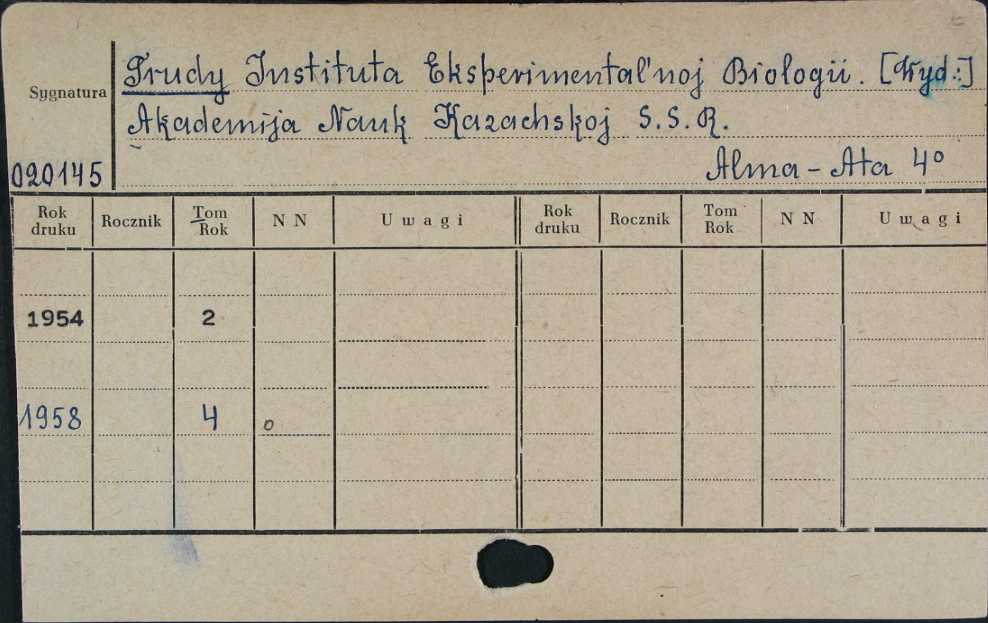 Trudy Instituta Eksperimental'noj Biologii. [Wyd.:]
Sygnatura
Akademija Nauk Kazachskoj S.S.R.
020145
Alma-Ata 4°
Rok druku Rocznik Tom Rok N N Uwagi Rok druku Rocznik Tom Rok N N Uwagi
1954 2
1958 4 o